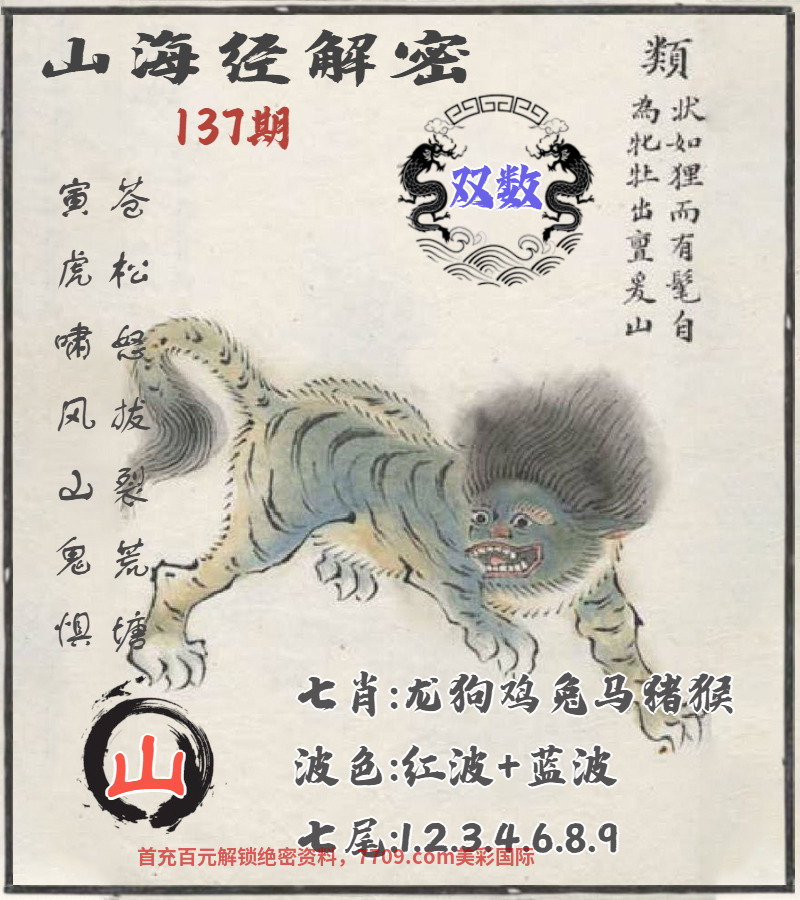 山海经解密
137期
類
状如狸而有髦自
為牝牡出亶爰山
双数
苍松怒拔裂荒塘
寅虎啸风山鬼惧
七肖:龙狗鸡兔马猪猴
波色:红波+蓝波
七尾:1.2.3.4.6.8.9
山
首充百元解锁绝密资料，7709.com美彩国际